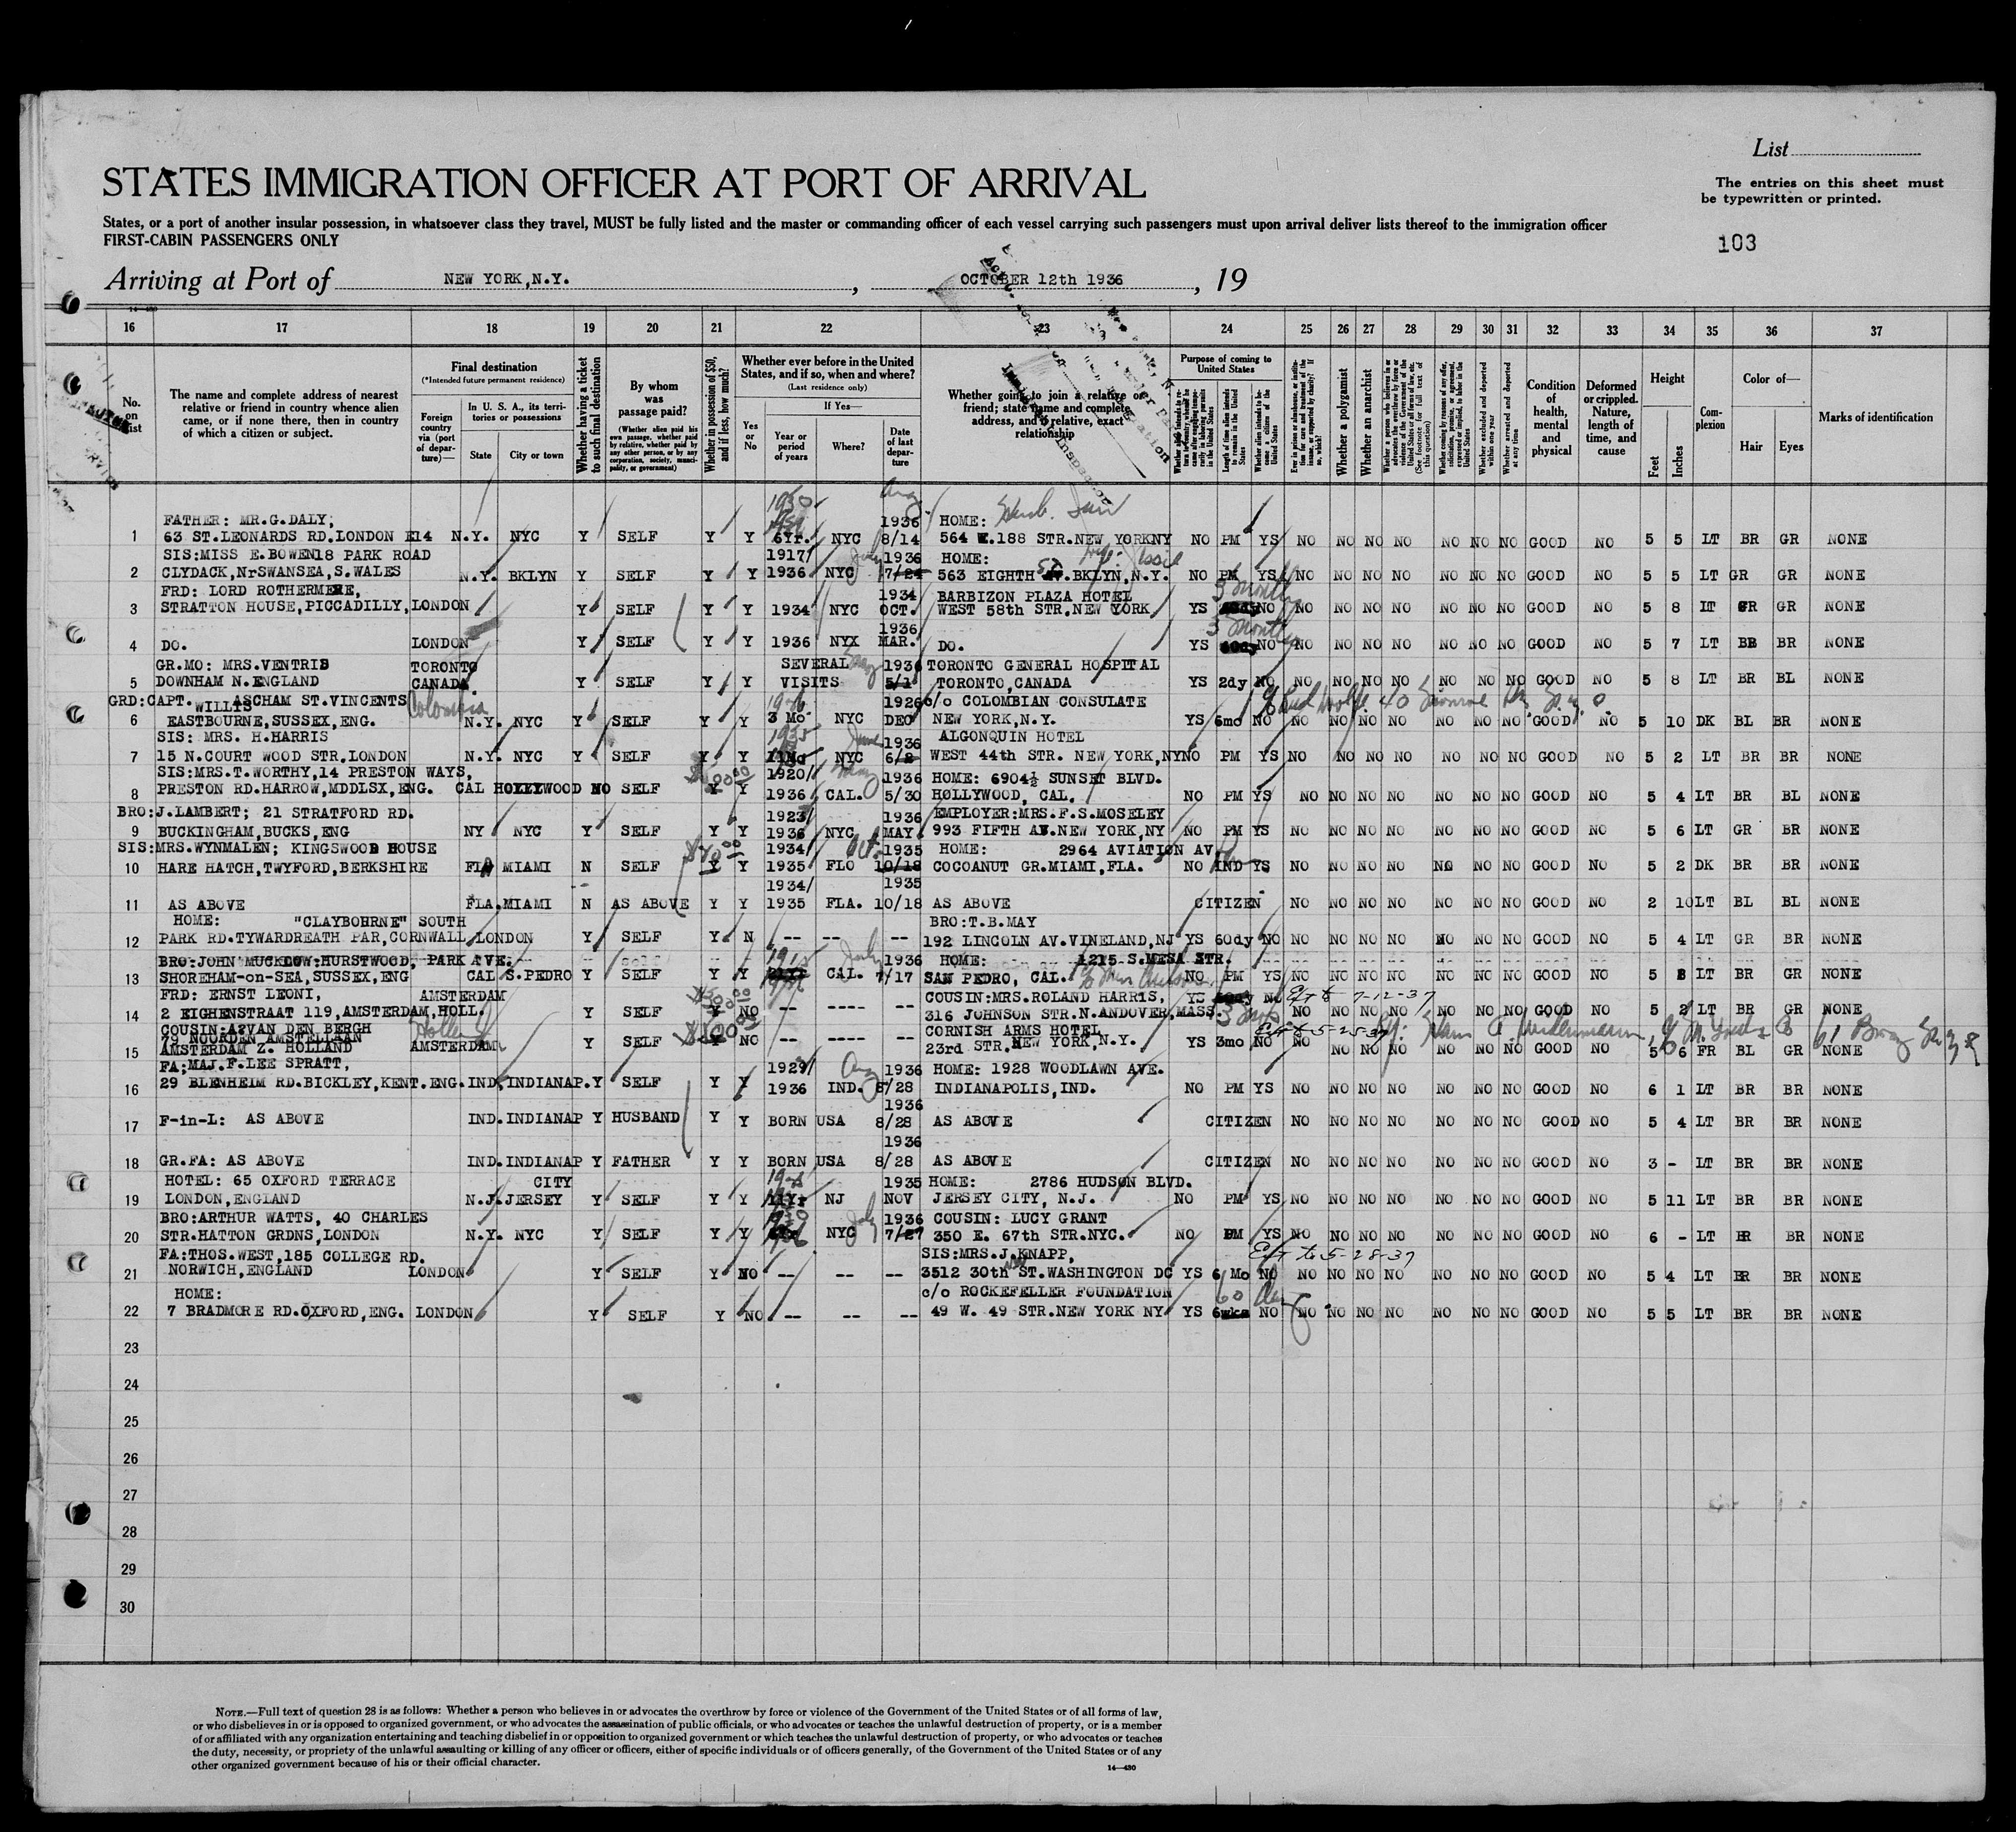 List
STATES IMMIGRATION OFFICER AT PORT OF ARRIVAL
The entries on this sheet must
be typewritten or printed.
States, or a port of another insular possession, in whatsoever class they travel, MUST be fully listed and the master or commanding officer of each vessel carrying such passengers must upon arrival deliver lists thereof to the immigration officer
FIRST-CABIN PASSENGERS ONLY
103
Arriving at Port of NEW YORK,N.Y. , OCTOBER 12th 1936 , 19
16 17 18 19 20 21 22 23 24 25 26 27 28 29 30 31 32 33 34 35 36 37
No. on List
The name and complete address of nearest
relative or friend in country whence alien
came, or if none there, then in country
of which a citizen or subject.
Final destination
(*Intended future permanent residence)
Foreign country via (port of departure)—
In U. S. A., its territories or possessions
State
City or town
Whether having a ticket to such final destination
By whom was passage paid?
(Whether alien paid his own passage, whether paid by relative, whether paid by any other person, or by any corporation, society, municipality, or government)
Whether in possession of $50, and if less, how much?
Whether ever before in the United
States, and if so, when and where?
(Last residence only)
Yes or No
If Yes—
Year or period of years
Where?
Date of last departure
Whether going to join a relative or
friend; state name and complete
address, and if relative, exact
relationship
Purpose of coming to United States
Length of time alien intends to remain in the United States
Whether alien intends to become a citizen of the United States
Whether a polygamist
Whether an anarchist
Whether excluded and deported within one year
Whether arrested and deported at any time
Condition of health, mental and physical
Deformed or crippled. Nature, length of time, and cause
Height
Feet
Inches
Complexion
Color of—
Hair
Eyes
Marks of identification
FATHER: MR.G.DALY; 1936 HOME:
1 63 ST.LEONARDS RD.LONDON E14 N.Y. NYC Y SELF Y Y 6Yr. NYC 8/14 564 W.188 STR.NEW YORKNY NO PM YS NO NO NO NO NO NO NO GOOD NO 5 5 LT BR GR NONE
SIS:MISS E.BOWEN18 PARK ROAD 1917/ 1936 HOME:
2 CLYDACK,NrSWANSEA,S.WALES N.Y. BKLYN Y SELF Y Y 1936 NYC 7/24 563 EIGHTH BKLYN,N.Y. NO PM YS NO NO NO NO NO NO NO GOOD NO 5 5 LT GR GR NONE
FRD: LORD ROTHERMERE, 1934 BARBIZON PLAZA HOTEL 3 months
3 STRATTON HOUSE,PICCADILLY,LONDON Y SELF Y Y 1934 NYC OCT. WEST 58th STR.NEW YORK YS NO NO NO NO NO NO NO NO GOOD NO 5 8 LT GR GR NONE
1936 3 months
4 DO. LONDON Y SELF Y Y 1936 NYX MAR. DO. YS NO NO NO NO NO NO NO NO GOOD NO 5 7 LT BR BR NONE
GR.MO: MRS.VENTRIS TORONTO SEVERAL 1936 TORONTO GENERAL HOSPITAL
5 DOWNHAM N.ENGLAND CANADA Y SELF Y Y VISITS 5/1 TORONTO,CANADA YS 2dy NO NO NO NO NO NO NO NO GOOD NO 5 8 LT BR BL NONE
GRD:CAPT. WILLIS ASCHAM ST.VINCENTS Colombia 1926 c/o COLOMBIAN CONSULATE
6 EASTBOURNE,SUSSEX,ENG. N.Y. NYC Y SELF Y Y 3 Mo NYC DEC NEW YORK,N.Y. YS 6mo NO NO NO NO NO NO NO NO GOOD NO 5 10 DK BL BR NONE
SIS: MRS. H.HARRIS June 1936 ALGONQUIN HOTEL
7 15 N.COURT WOOD STR.LONDON N.Y. NYC Y SELF Y Y NYC 6/2 WEST 44th STR. NEW YORK,NY NO PM YS NO NO NO NO NO NO NO GOOD NO 5 2 LT BR BR NONE
SIS:MRS.T.WORTHY,14 PRESTON WAYS, 1920/ 1936 HOME: 6904½ SUNSET BLVD.
8 PRESTON RD.HARROW,MDDLSX,ENG. CAL HOLLYWOOD NO SELF Y Y 1936 CAL. 5/30 HOLLYWOOD, CAL. NO PM YS NO NO NO NO NO NO NO GOOD NO 5 4 LT BR BL NONE
BRO:J.LAMBERT; 21 STRATFORD RD. 1923/ 1936 EMPLOYER:MRS.F.S.MOSELEY
9 BUCKINGHAM,BUCKS,ENG NY NYC Y SELF Y Y 1936 NYC MAY 993 FIFTH AV.NEW YORK,NY NO PM YS NO NO NO NO NO NO NO GOOD NO 5 6 LT GR BR NONE
SIS:MRS.WYNMALEN; KINGSWOOD HOUSE 1934/ Oct. 1935 HOME: 2964 AVIATION AV,
10 HARE HATCH,TWYFORD,BERKSHIRE FLA MIAMI N SELF Y Y 1935 FLO 10/18 COCOANUT GR.MIAMI,FLA. NO IND YS NO NO NO NO NO NO NO GOOD NO 5 2 DK BR BR NONE
1934/ 1935
11 AS ABOVE FLA.MIAMI N AS ABOVE Y Y 1935 FLA. 10/18 AS ABOVE CITIZEN NO NO NO NO NO NO NO GOOD NO 2 10 LT BL BL NONE
HOME: "CLAYBOHRNE" SOUTH BRO:T.B.MAY
12 PARK RD.TYWARDREATH PAR,CORNWALL LONDON Y SELF Y N -- -- -- 192 LINCOLN AV.VINELAND,NJ YS 60dy NO NO NO NO NO NO NO NO GOOD NO 5 4 LT GR BR NONE
BRO:JOHN MUCKLOW:HURSTWOOD, PARK AVE. July 1936 HOME: 1215 S.MESA STR.
13 SHOREHAM-on-SEA,SUSSEX,ENG CAL S.PEDRO Y SELF Y Y CAL. 7/17 SAN PEDRO, CAL. NO PM YS NO NO NO NO NO NO NO GOOD NO 5 LT BR GR NONE
FRD: ERNST LEONI, AMSTERDAM COUSIN:MRS.ROLAND HARRIS, YS NO 7-12-37
14 2 EIGHENSTRAAT 119,AMSTERDAM,HOLL. Y SELF Y NO -- ---- -- 316 JOHNSON STR.N.ANDOVER,MASS. NO NO NO NO NO NO NO GOOD NO 5 2 LT BR GR NONE
COUSIN:A.VAN DEN BERGH CORNISH ARMS HOTEL 5-25-37
79 NOORDEN AMSTELLAAN
15 AMSTERDAM Z. HOLLAND AMSTERDAM Y SELF Y NO -- ---- -- 23rd STR.NEW YORK,N.Y. YS 3mo NO NO NO NO NO NO NO NO GOOD NO 5 6 FR BL GR NONE
FA:MAJ.F.LEE SPRATT, 1929/ Aug 1936 HOME: 1928 WOODLAWN AVE.
16 29 BLENHEIM RD.BICKLEY,KENT.ENG. IND.INDIANAP. Y SELF Y Y 1936 IND. 8/28 INDIANAPOLIS,IND. NO PM YS NO NO NO NO NO NO NO GOOD NO 6 1 LT BR BR NONE
1936
17 F-in-L: AS ABOVE IND.INDIANAP Y HUSBAND Y Y BORN USA 8/28 AS ABOVE CITIZEN NO NO NO NO NO NO NO GOOD NO 5 4 LT BR BR NONE
1936
18 GR.FA: AS ABOVE IND.INDIANAP Y FATHER Y Y BORN USA 8/28 AS ABOVE CITIZEN NO NO NO NO NO NO NO GOOD NO 3 - LT BR BR NONE
HOTEL: 65 OXFORD TERRACE CITY 1935 HOME: 2786 HUDSON BLVD.
19 LONDON,ENGLAND N.J.JERSEY Y SELF Y Y NJ NOV JERSEY CITY, N.J. NO PM YS NO NO NO NO NO NO NO GOOD NO 5 11 LT BR BR NONE
BRO:ARTHUR WATTS, 40 CHARLES July 1936 COUSIN: LUCY GRANT
20 STR.HATTON GRDNS,LONDON N.Y. NYC Y SELF Y Y NYC 7/27 350 E. 67th STR.NYC. NO PM YS NO NO NO NO NO NO NO GOOD NO 6 - LT BR BR NONE
FA:THOS.WEST,185 COLLEGE RD. SIS:MRS.J.KNAPP, 5-28-37
21 NORWICH,ENGLAND LONDON Y SELF Y NO -- -- -- 3512 30th ST.WASHINGTON DC YS 6 Mo NO NO NO NO NO NO NO NO GOOD NO 5 4 LT BR BR NONE
HOME: c/o ROCKEFELLER FOUNDATION 60 day
22 7 BRADMORE RD.OXFORD,ENG. LONDON Y SELF Y NO -- -- -- 49 W. 49 STR.NEW YORK NY YS 6wks NO NO NO NO NO NO NO NO GOOD NO 5 5 LT BR BR NONE
23
24
25
26
27
28
29
30
NOTE.—Full text of question 28 is as follows: Whether a person who believes in or advocates the overthrow by force or violence of the Government of the United States or of all forms of law,
or who disbelieves in or is opposed to organized government, or who advocates the assassination of public officials, or who advocates or teaches the unlawful destruction of property, or is a member
of or affiliated with any organization entertaining and teaching disbelief in or opposition to organized government or which teaches the unlawful destruction of property, or who advocates or teaches
the duty, necessity, or propriety of the unlawful assaulting or killing of any officer or officers, either of specific individuals or of officers generally, of the Government of the United States or of any
other organized government because of his or their official character.
14—430